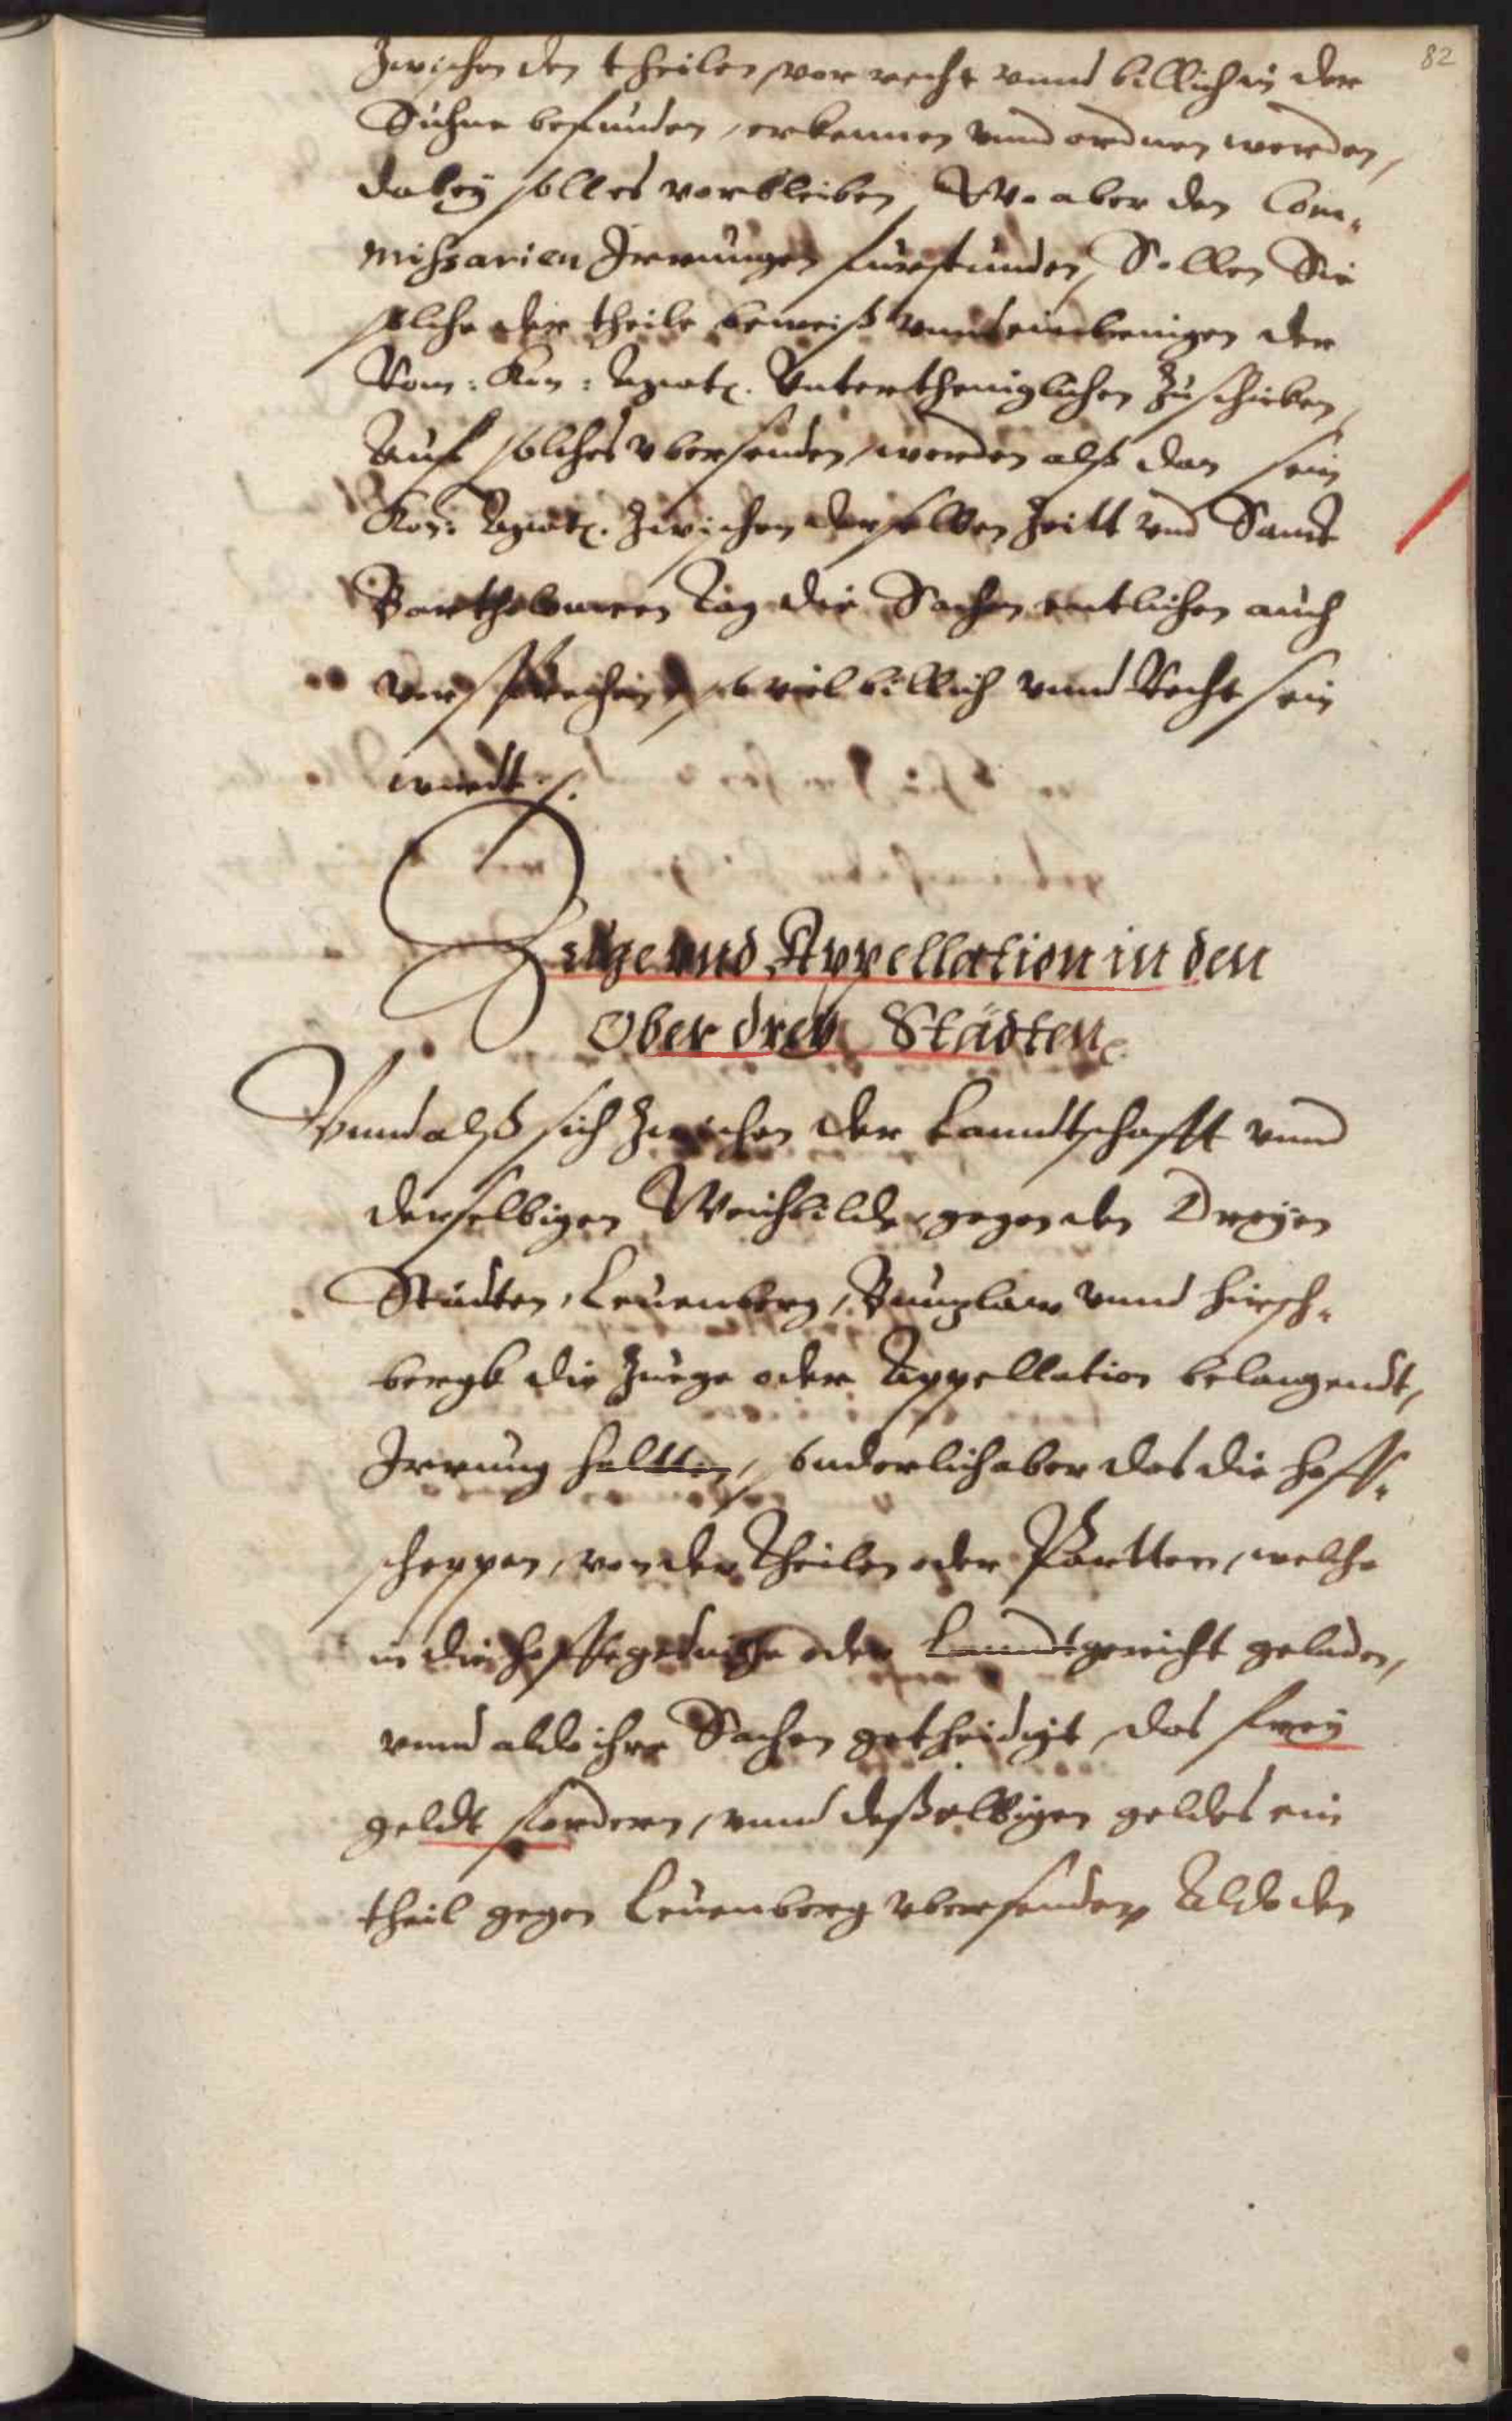 82
Zwischen den theilen, vor recht vnnd billich in der
Sühne befunden, erkennen vnnd ordnen werden,
dabeÿ soll es vorbleiben, Wo aber den Com-
mißarien Irrungen fürstunden, Sollen Sie
solche der theile beweiß vnnd einbringen der
Rom: Kon: Maiet. Vntertheniglichen Zuschicken,
Auf solches vbersenden, werden alß dan sein
Kon: Maiet. Zwischen derselben Zeitt vnd Sanct
Bartholomeen Tag die Sachen entlichen auch
vorsprechen, so viel billich vnnd Recht sein
wirdt.
Zuge vnd Appellation in den
Ober dreÿ Städten
Vnnd alß sich Zwischen der Landtschafft vnnd
derselbigen Weichbilde, gegen den Dreÿen
Städten, Leüenberg, Bunzlaw vnnd Hirsch-
bergk die Züege oder Appellation belangendt,
Irrung haltten, sonderlich aber das die Hoff-
scheppen, von den Theilen oder Partten, welche
in die Hoffegedinge oder Landtgericht geladen,
vnnd aldo ihre Sachen getheidigt, das freÿ
geldt fordern, vnnd deßelbigen geldes ein
theil gegen Leüenberg vbersenden, Aldo den